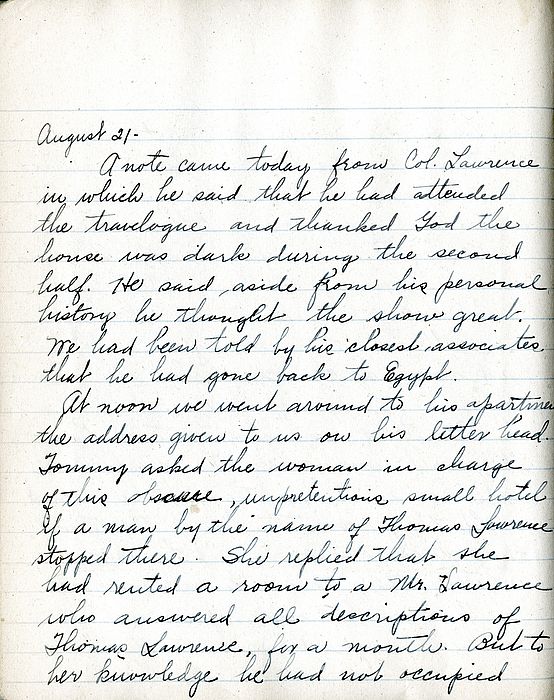 August 21-
A note came today from Col. Lawrence
in which he said that he had attended
the travelogue and thanked God the
house was dark during the second
half. He said, aside from his personal
history he thought the show great.
We had been told by his closest associates
that he had gone back to Egypt.
At noon we went around to his apartmen
the address given to us on his letter head.
Tommy asked the woman in charge
of this obscure, unpretentious small hotel
if a man by the name of Thomas Lawrence
stopped there. She replied that she
had rented a room to a Mr. Lawrence
who answered all descriptions of
Thomas Lawrence, for a month. But to
her knowledge he had not occupied